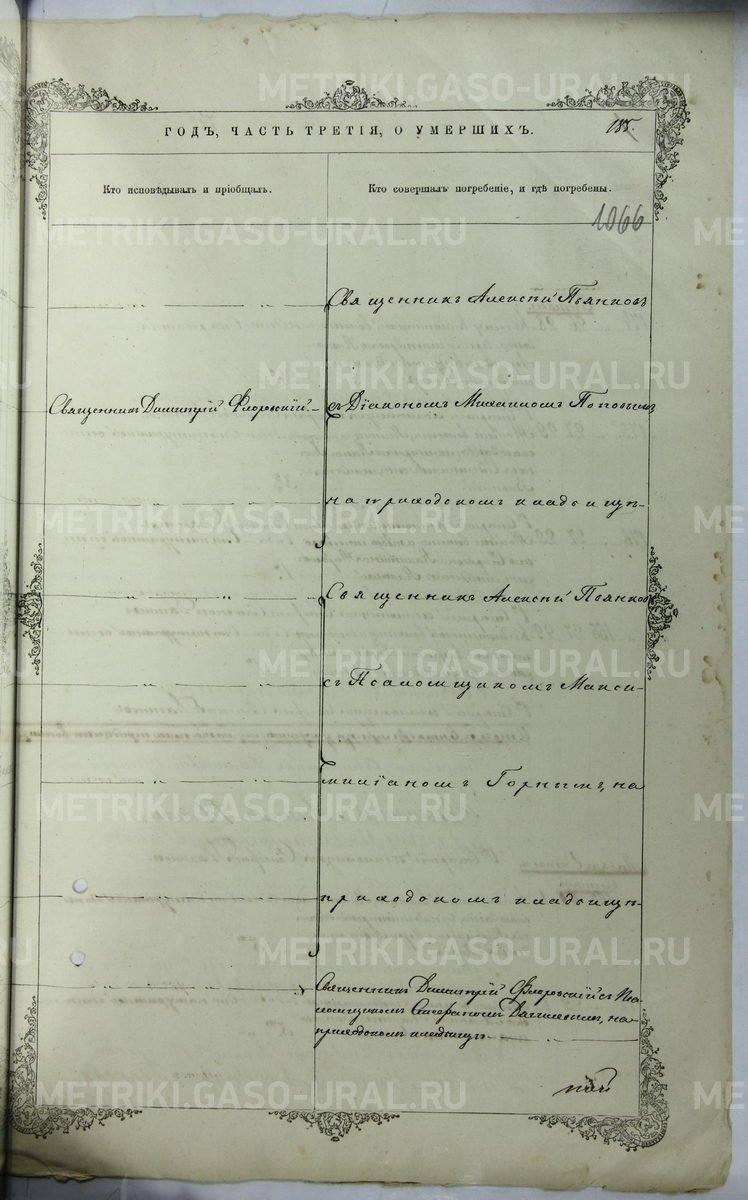 ГОДЪ, ЧАСТЬ ТРЕТІЯ, О УМЕРШИХЪ.
185.
Кто исповѣдывалъ и пріобщалъ.
Кто совершалъ погребеніе, и гдѣ погребены.
1066
Священникъ Алексѣй Пьянковъ
Священникъ Димитрій Флоровскій
съ Діакономъ Михаиломъ Поповымъ
на приходскомъ кладбищѣ
Священникъ Алексѣй Пьянковъ
съ Псаломщикомъ Макси-
миліаномъ Горнымъ, на
приходскомъ кладбищѣ
Священникъ Димитрій Флоровскій съ Пса-
ломщикомъ Стефаномъ на
приходскомъ кладбищѣ
METRIKI.GASO-URAL.RU